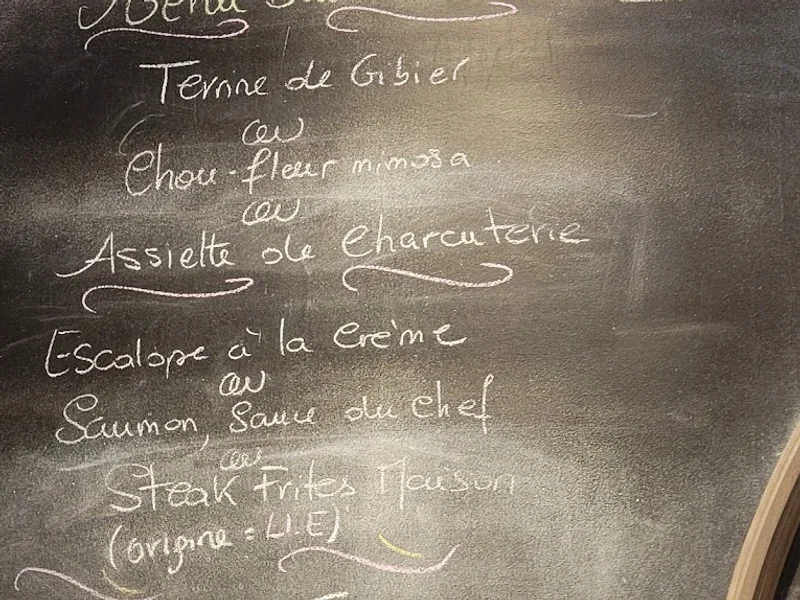 Menu
Terrine de Gibier
ou
Chou-fleur mimosa
ou
Assiette de Charcuterie
Escalope à la Crème
ou
Saumon, Sauce du chef
ou
Steak Frites Maison
(origine : U.E)